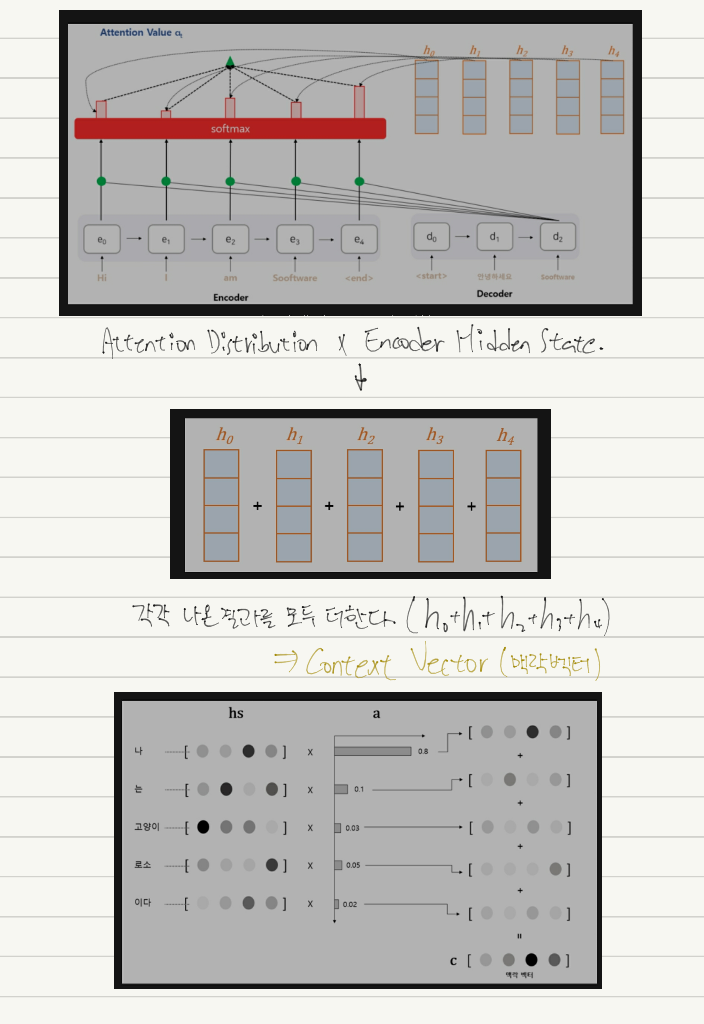 Attention Value αt
h0 h1 h2 h3 h4
softmax
e0 e1 e2 e3 e4
d0 d1 d2
Hi I am Sooftware <end>
<start> 안녕하세요 Sooftware
Encoder
Decoder
Attention Distribution x Encoder Hidden State.
↓
h0 h1 h2 h3 h4
+ + + +
각각 나온 결과를 모두 더한다. (h0+h1+h2+h3+h4)
⇒ Context Vector (맥락벡터)
hs a
나 [ ] x 0.8 [ ]
+
는 [ ] x 0.1 [ ]
+
고양이 [ ] x 0.03 [ ]
+
로소 [ ] x 0.05 [ ]
+
이다 [ ] x 0.02 [ ]
=
c [ ]
맥락 벡터